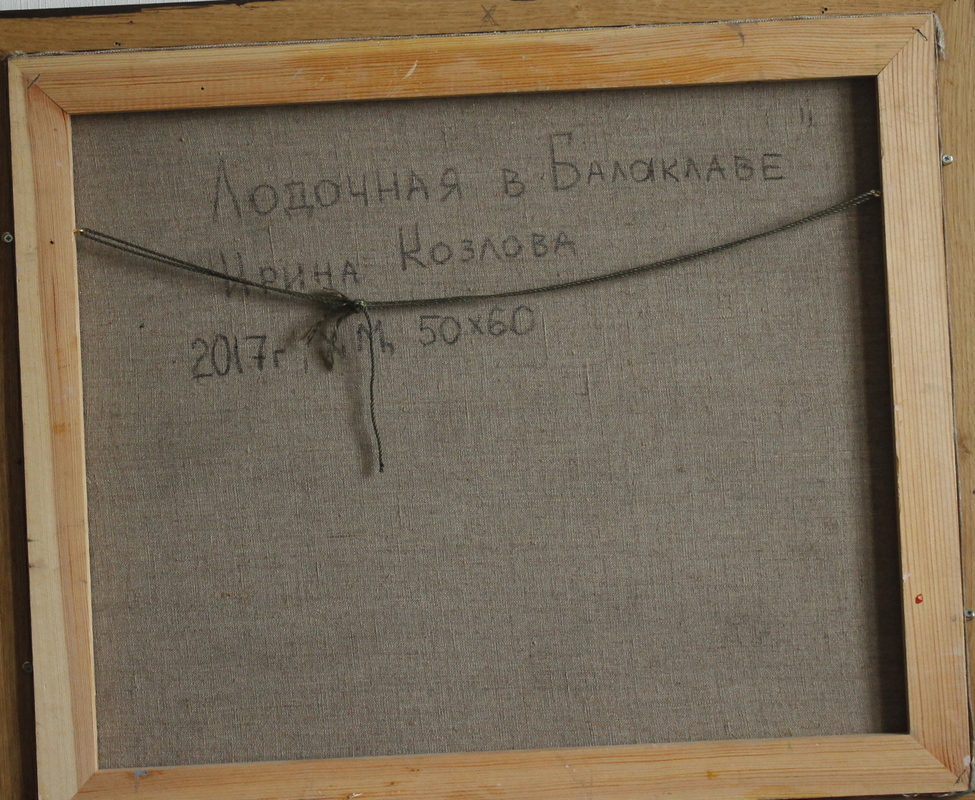 Лодочная в Балаклаве"
Ирина Козлова
2017г х, м, 50х60